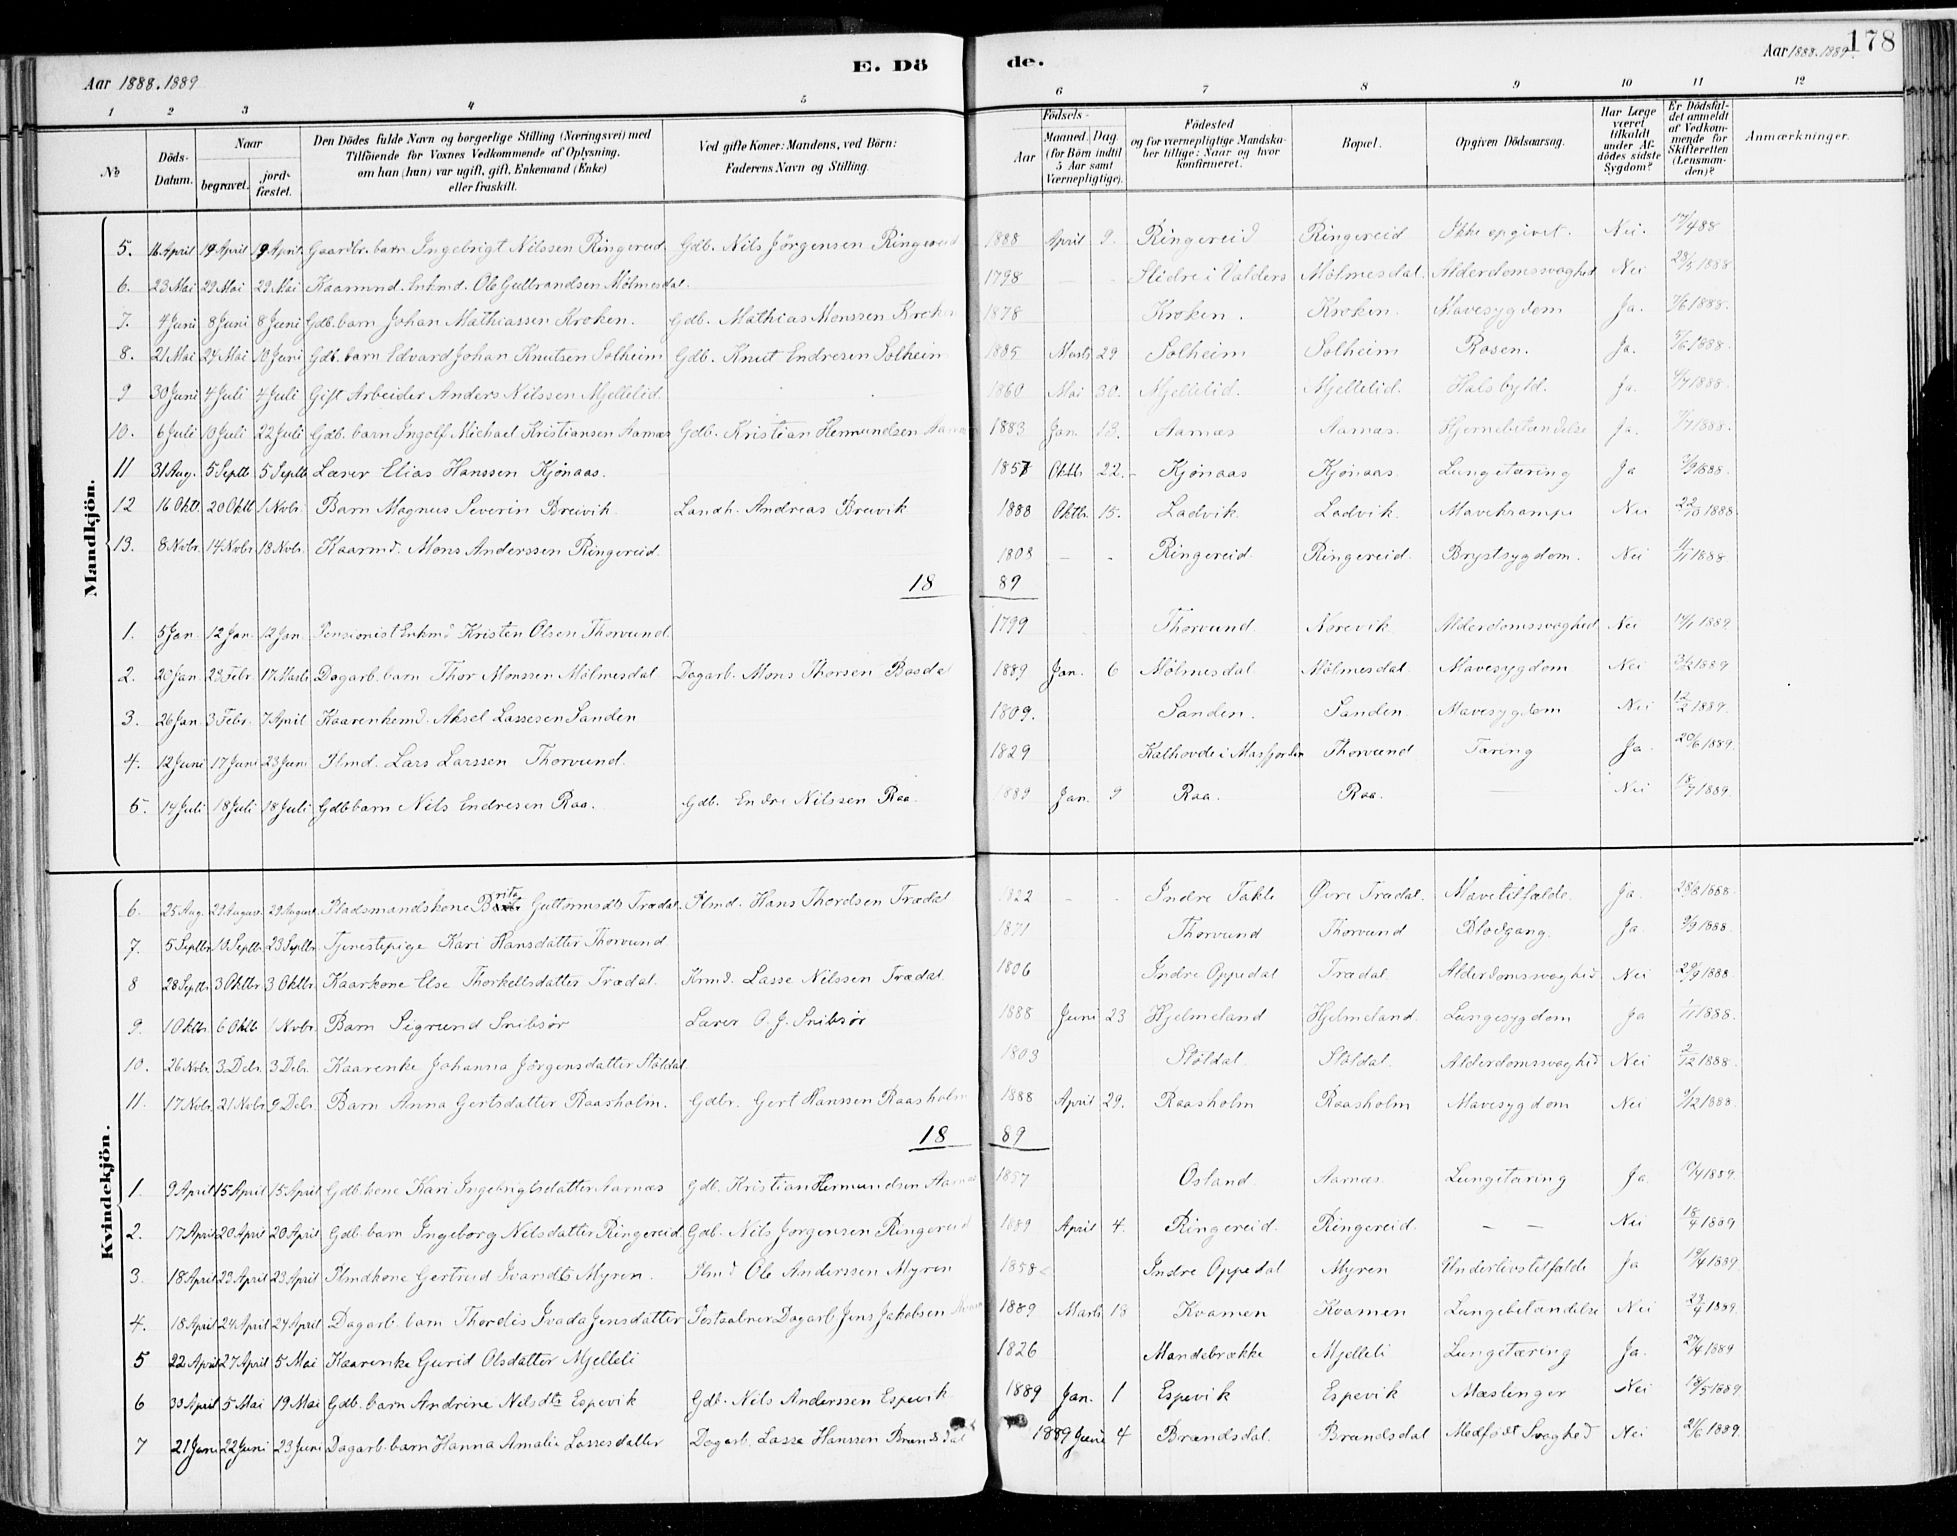 Aar 1888.1889 E. Dö de. Aar 1888.1889. 178
1 2 3 4 5 6 7 8 9 10 11 12
No
Döds-Datum.
Naar
begravet.
jordfæstet.
Den Dödes fulde Navn og borgerlige Stilling (Næringsvei) med
Tilföiende for Voxnes Vedkommende af Oplysning,
om han (hun) var ugift, gift, Enkemand (Enke)
eller fraskilt.
Ved gifte Koner: Mandens, ved Börn:
Faderens Navn og Stilling.
Födsels-
Aar
Maaned. Dag.
(for Börn indtil
5 Aar samt
Værnepligtige).
Födested
og for værnepligtige Mandskaber tillige: Naar og hvor
konfirmeret.
Bopæl.
Opgiven Dödsaarsag.
Har Læge
været
tilkaldt
under Afdödes sidste
Sygdom?
Er Dödsfaldet anmeldt
af Vedkommende for
Skifteretten
(Lensmanden)?
Anmærkninger.
Mandkjön.
5. 16 April 19 April 19 April Gaardbr. barn Ingebrigt Nilssen Ringereid Gdb. Nils Jörgensen Ringereid 1888 April 9. Ringereid Ringereid Ikke opgivet. Nei. 17/4 88
6. 23 Mai 29 Mai 29 Mai Kaarmd. Enkmd. Ole Gulbrandsen Mölmesdal. 1798 — - Slidre i Valders Mölmesdal. Alderdomssvaghed Nei 28/5 1888
7. 4 Juni 8 Juni 8 Juni Gdb. barn Johan Mathiassen Kroken. Gdb. Mathias Monssen Kroken 1878 Kroken. Kroken. Mavesygdom Ja. 7/6 1888.
8. 21 Mai 27 Mai 10 Juni Gdb. barn Edvard Johan Knutsen Solheim Gdb. Knut Endresen Solheim 1885 Marts 29 Solheim Solheim Rosen. Ja. 5/6 1888.
9 30 Juni 4 Juli 4 Juli Gift Arbeider Anders Nilssen Mjellelid. 1860 Mai 30. Mjellelid. Mjellelid. Halsbyld. Ja. 4/7 1888.
10. 6 Juli 10 Juli 22 Juli Gdb. barn Ingolf Michael Kristiansen Aarnæs Gdb. Kristian Hermundsen Aarnæs 1883 Jan. 13. Aarnæs Aarnæs. Hjernebetændelse Ja. 7/7 1888.
11 31 Aug. 5 Septb 5 Septb Lærer Elias Hanssen Kjönaas. 1857 Oktb. 22. Kjönaas Kjönaas. Lungetæring Ja 3/9 1888.
12 16 Oktb. 20 Oktb 1 Novbr. Barn Magnus Severin Breivik. Landh. Andreas Breivik 1888 Oktbr. 15. Ladvik. Ladvik. Mavekrampe Nei 22/10 1888.
13. 8 Novbr. 14 Novbr. 18 Novbr. Kaarmd. Mons Anderssen Ringereid. 1808 — - Ringereid Ringereid. Brystsygdom. Nei 11/11 1888
18 89
1. 5 Jan. 12 Jan. 12 Jan. Pensionist Enkmd Kristen Olsen Thorvund. 1799 Thorvund Norevik Alderdomssvaghed Nei 14/1 1889.
2. 20 Jan. 23 Febr. 17 Marts Dagarb. barn Thor Monssen Mölmesdal. Dagarb. Mons Thorsen 1889 Jan. 6 Mölmesdal. Mölmesdal. Mavesygdom Nei 3/2 1889
3. 26 Jan. 3 Febr. 7 April Kaarenkemd. Aksel Lassesen Sanden 1809. Sanden. Sanden. Mavesygdom Nei 12/2 1889.
4. 12 Juni 17 Juni 23 Juni Plmd. Lars Larssen Thorvund. 1829 Kalhovde i Masfjorden Thorvund Tæring Ja. 20/6 1889.
5. 14 Juli 18 Juli 18 Juli Gdb barn Nils Endresen Raa. Gdb. Endre Nilssen Raa. 1889 Jan. 9 Raa. Raa. — Nei 18/7 1889.
Kvindekjön.
6. 25 Aug. 29 August 29 August Pladsmandskone Brita Guttormsdtr Trædal. Plmd. Hans Thordsen Trædal 1822 - - Indre Takle Övre Trædal. Mavetilfælde. Ja. 28/8 1888.
7. 5 Septbr 10 Septb. 23 Septbr. Tjenestepige Kari Hansdatter Thorvund 1871 Thorvund Thorvund Blodgang. Ja 9/9 1888.
8 28 Septbr. 3 Oktbr. 3 Oktbr. Kaarkone Else Thorkellsdatter Trædal. Kmd. Lasse Nilssen Trædal 1806 Indre Oppedal Trædal. Alderdomssvaghed Nei 29/9 1888.
9. 1 Oktb. 6 Oktb 1 Novbr. Barn Sigrund Snibsör Lærer O. J. Snibsör 1888 Juni 23 Hjelmeland Hjelmeland. Lungesygdom Ja 1/11 1888.
10. 26 Novbr. 3 Debr. 3 Debr. Kaarenke Johanna Jörgensdatter Stöldal. 1803 Stöldal. Stöldal. Alderdomssvaghed Nei 2/12 1888.
11. 17 Novbr. 21 Novbr 9 Debr. Barn Anna Gertsdatter Raasholm. Gdbr. Gert Hanssen Raasholm 1888 April 29. Raasholm Raasholm Mavesygdom Nei 9/12 1888.
18 89
1. 9 April 15 April 15 April Gdb. kone Kari Ingebrigtsdatter Aarnæs Gdb. Kristian Hermundsen Aarnæs 1857 Osland. Aarnæs. Lungetæring Ja. 10/4 1889.
2. 17 April 20 April 20 April Gdb. barn Ingeborg Nilsdatter Ringereid. Gdb. Nils Jörgensen Ringereid 1889 April 4. Ringereid. Ringereid. — — Nei 18/4 1889
3. 18 April 23 April 23 April Plmdkone Gertrud Ivarsdtr Myren. Plmd Ole Anderssen Myren 1858 Indre Oppedal Myren Underlivstilfælde Ja 19/4 1889.
4. 18 April 24 April 24 April Dagarb. barn Thordis Jensdatter Dagarb. Jens Jakobsen 1889 Marts 18 Kvamen Kvamen Lungebetændelse Nei 23/4 1889.
5 22 April 27 April 5 Mai Kaarenke Gurid Olsdatter Mjelleli 1826 Mandebrække Mjelleli Lungetæring Ja. 27/4 1889
6 30 April 5 Mai 19 Mai Gdb. barn Andrine Nilsdtr Espevik Gdb. Nils Anderssen Espevik 1889 Jan. 1 Espevik Espevik Mæslinger Nei 18/5 1889
7 21 Juni 22 Juni 23 Juni Dagarb. barn Hanna Amalie Lassesdatter Dagarb. Lasse Hanssen Brandsdal 1889 Juni 4 Brændsdal. Brandsdal Medfödt Svaghed Nei 21/6 1889.